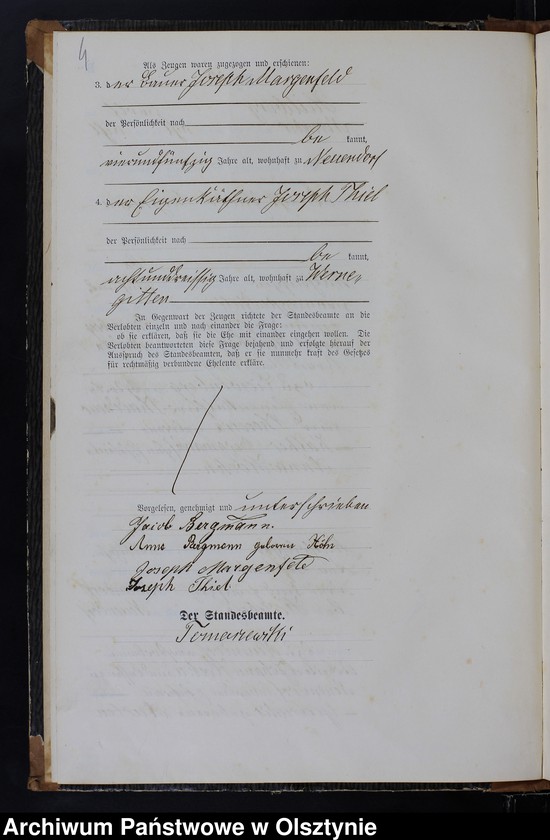 4
Als Zeugen waren zugezogen und erschienen:
3. der Bauer Joseph Margenfeld
der Persönlichkeit nach
be kannt,
vierundfünfzig Jahre alt, wohnhaft zu Neuendorf
4. der Eigenkäthner Joseph Thiel
der Persönlichkeit nach
be kannt,
achtunddreissig Jahre alt, wohnhaft zu Werne-
gitten
In Gegenwart der Zeugen richtete der Standesbeamte an die
Verlobten einzeln und nach einander die Frage:
ob sie erklären, daß sie die Ehe mit einander eingehen wollen. Die
Verlobten beantworteten diese Frage bejahend und erfolgte hierauf der
Ausspruch des Standesbeamten, daß er sie nunmehr kraft des Gesetzes
für rechtmäßig verbundene Eheleute erkläre.
Vorgelesen, genehmigt und unterschrieben
Jacob Bergmann.
Anna Bargmenn geboren Höhn
Joseph Margenfeld
Joseph Thiel
Der Standesbeamte.
Tomaszewski
Archiwum Państwowe w Olsztynie